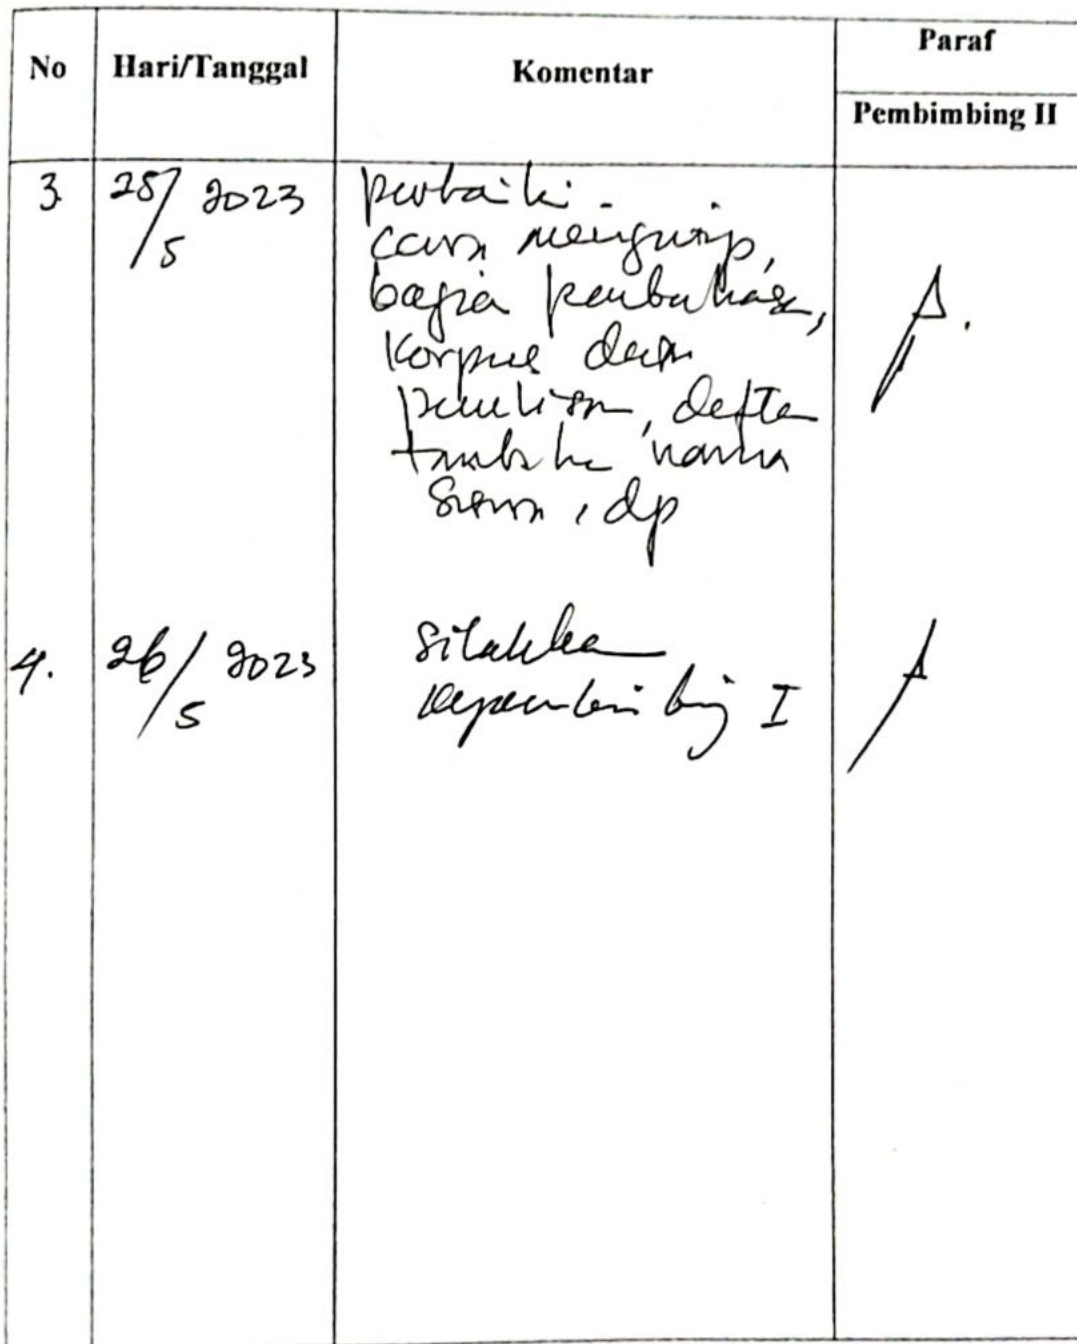 No
Hari/Tanggal
Komentar
Paraf
Pembimbing II
3 25/5 2023
perbaiki.
cara mengutip,
bagian pembahasan,
Korpus dan
penelitian, daftar
nama
siswa, dp
4. 26/5 2023
silahkan
kepembimbing I